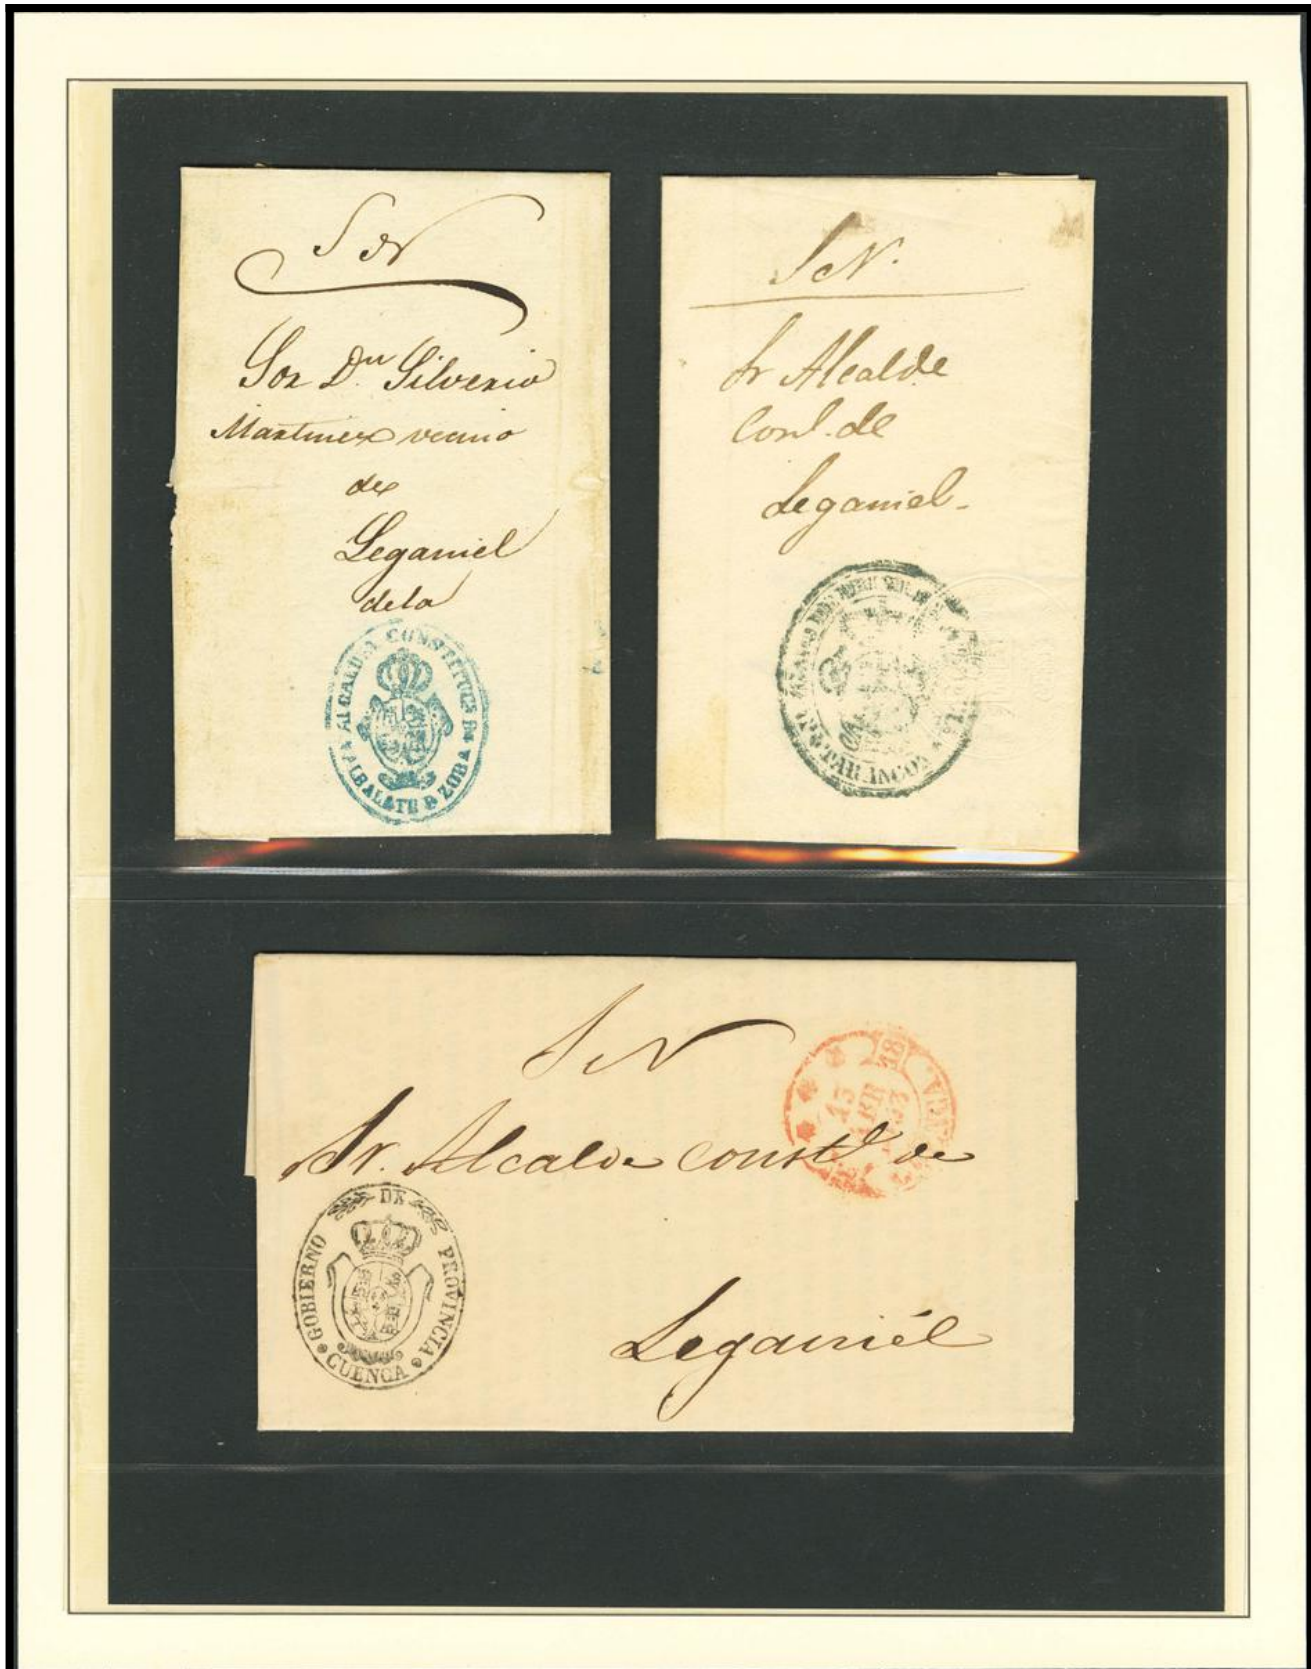 S N
Sor Dn Silverio
Martinez vecino
de
Leganiel
de la
ALCALDIA CONSTITUCS R
ALBALATE D ZORA
S N.
Sr Alcalde
Consl. de
Leganiel.
DE TARANCON
S N
Sr. Alcalde constl de
Leganiél
GOBIERNO DE PROVINCIA
CUENCA
18
13